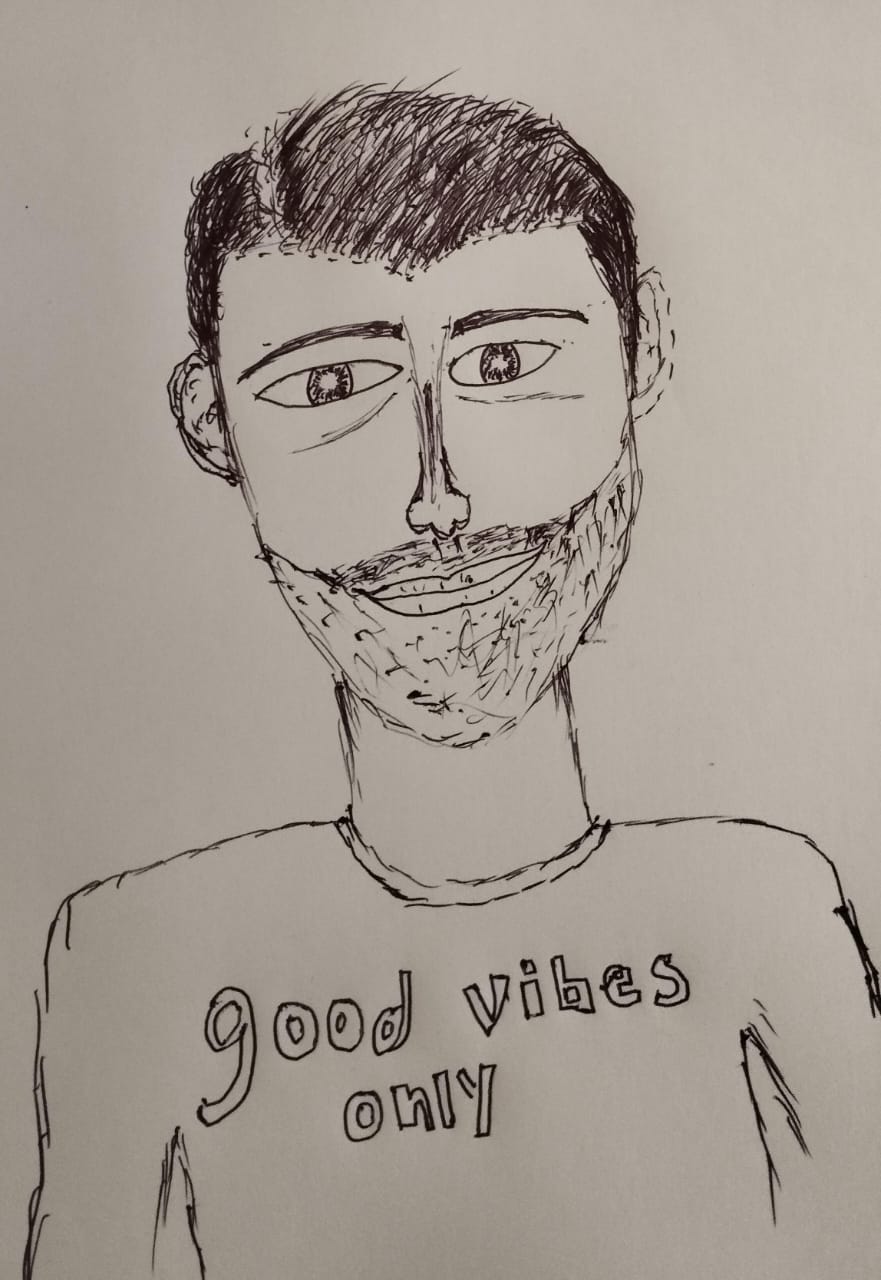 good vibes
only